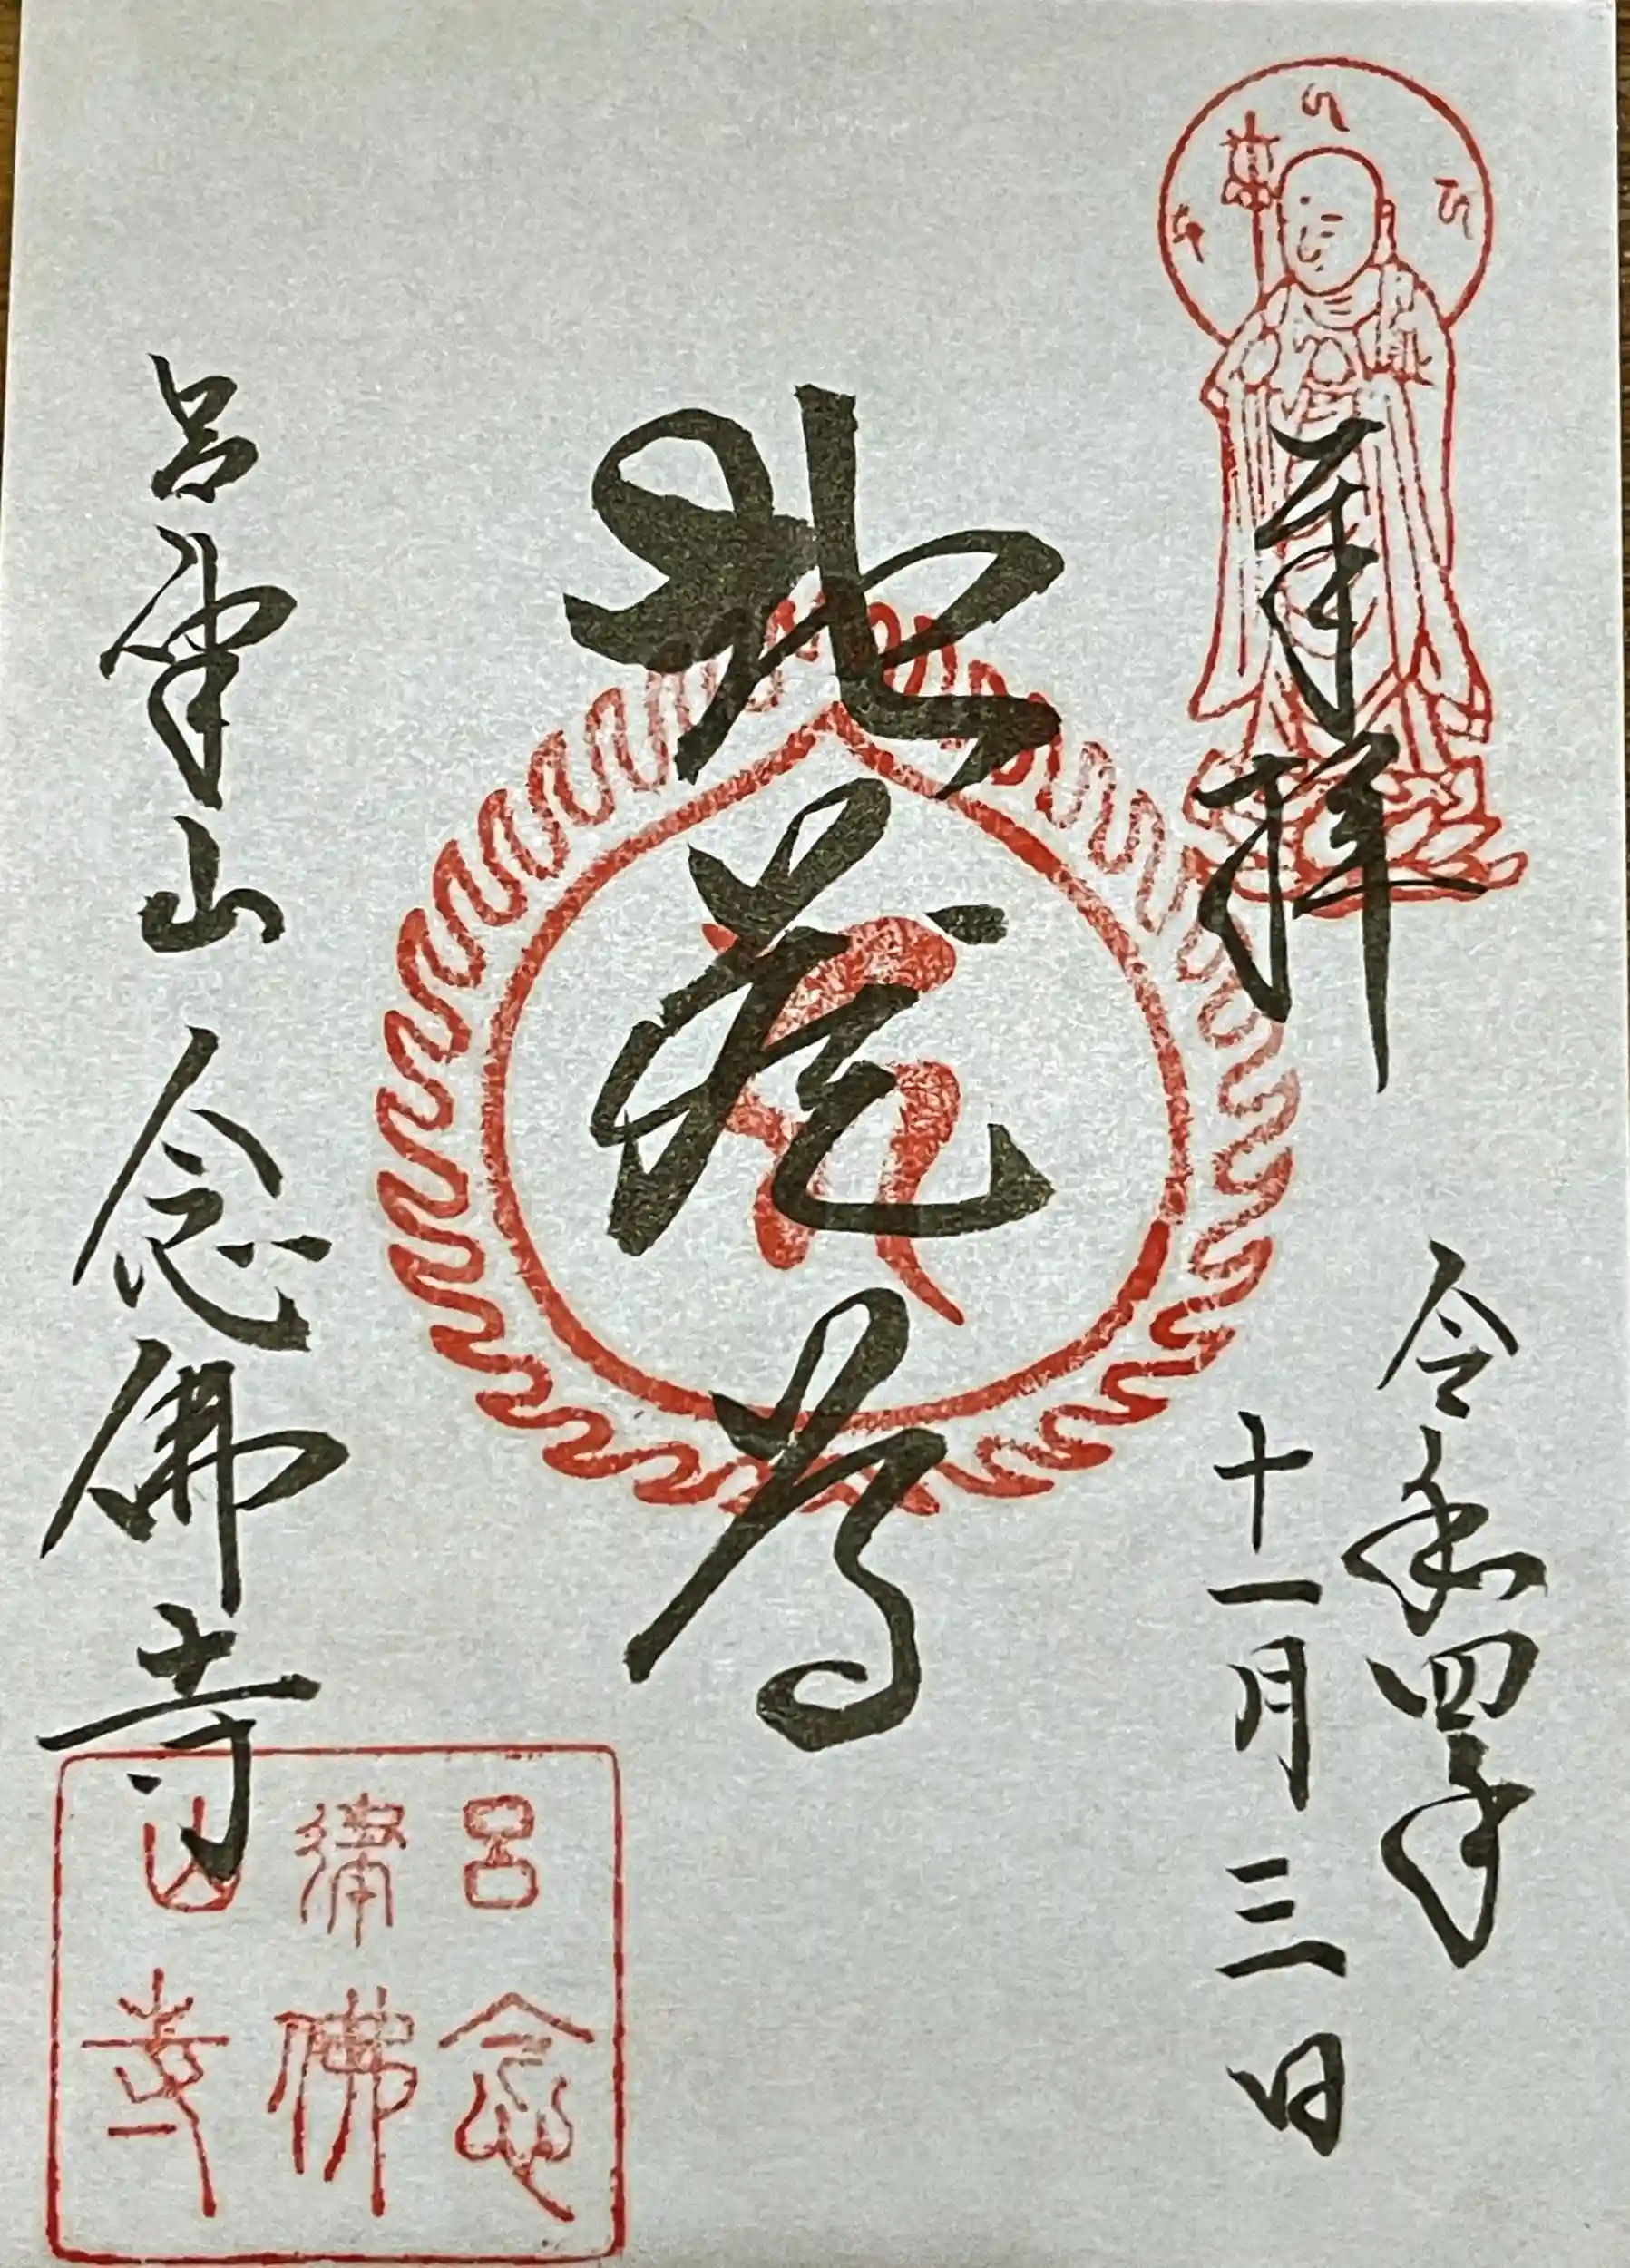 奉拝
令和四年
十一月三日
地蔵尊
呂律山 念佛寺
呂律山
念佛寺